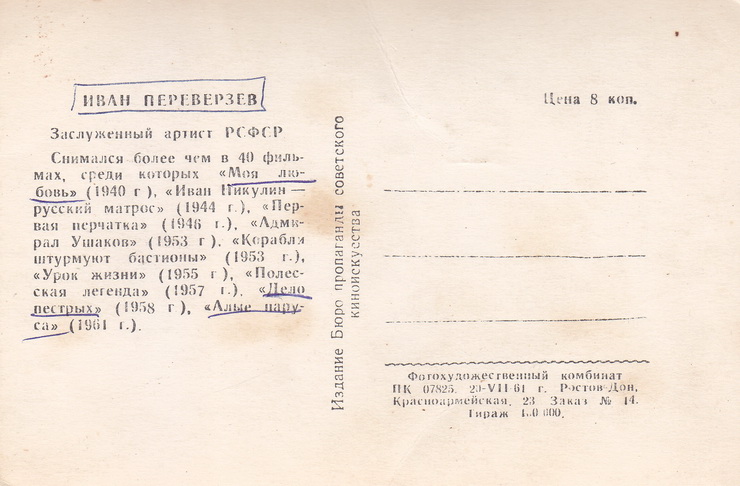 ИВАН ПЕРЕВЕРЗЕВ
Заслуженный артист РСФСР
Снимался более чем в 40 филь-
мах, среди которых «Моя лю-
бовь» (1940 г ), «Иван Никулин —
русский матрос» (1944 г.), «Пер-
вая перчатка» (1946 г.), «Адми-
рал Ушаков» (1953 г ), «Корабли
штурмуют бастионы» (1953 г.),
«Урок жизни» (1955 г ), «Полес-
ская легенда» (1957 г.), «Дело
пестрых» (1958 г ), «Алые пару-
са» (1961 г.).
Издание Бюро пропаганды советского
киноискусства
Цена 8 коп.
Фотохудожественный комбинат
ПК 07825. 29-VII-61 г. Ростов-Дон,
Красноармейская, 23 Заказ № 14.
Тираж